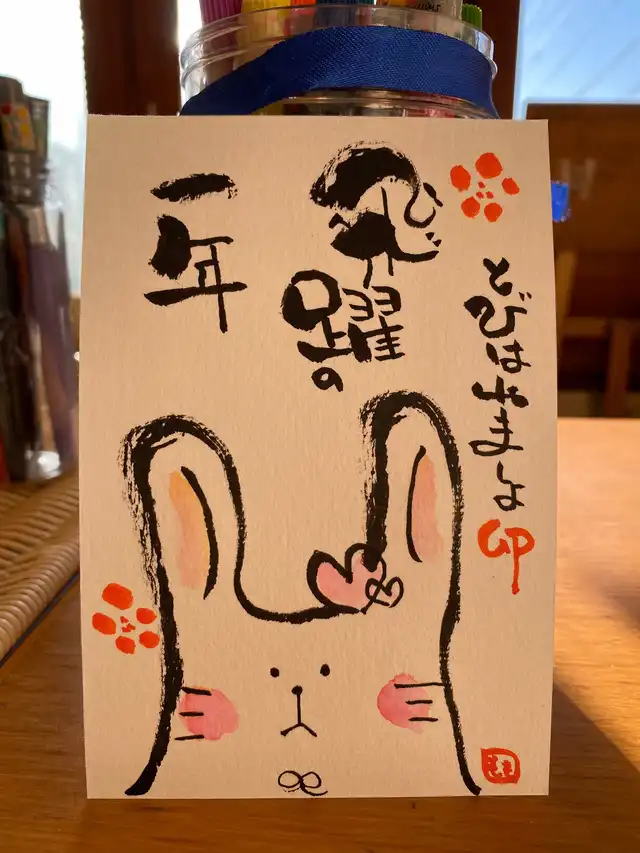 とびはねましょ卯
飛躍の
一年